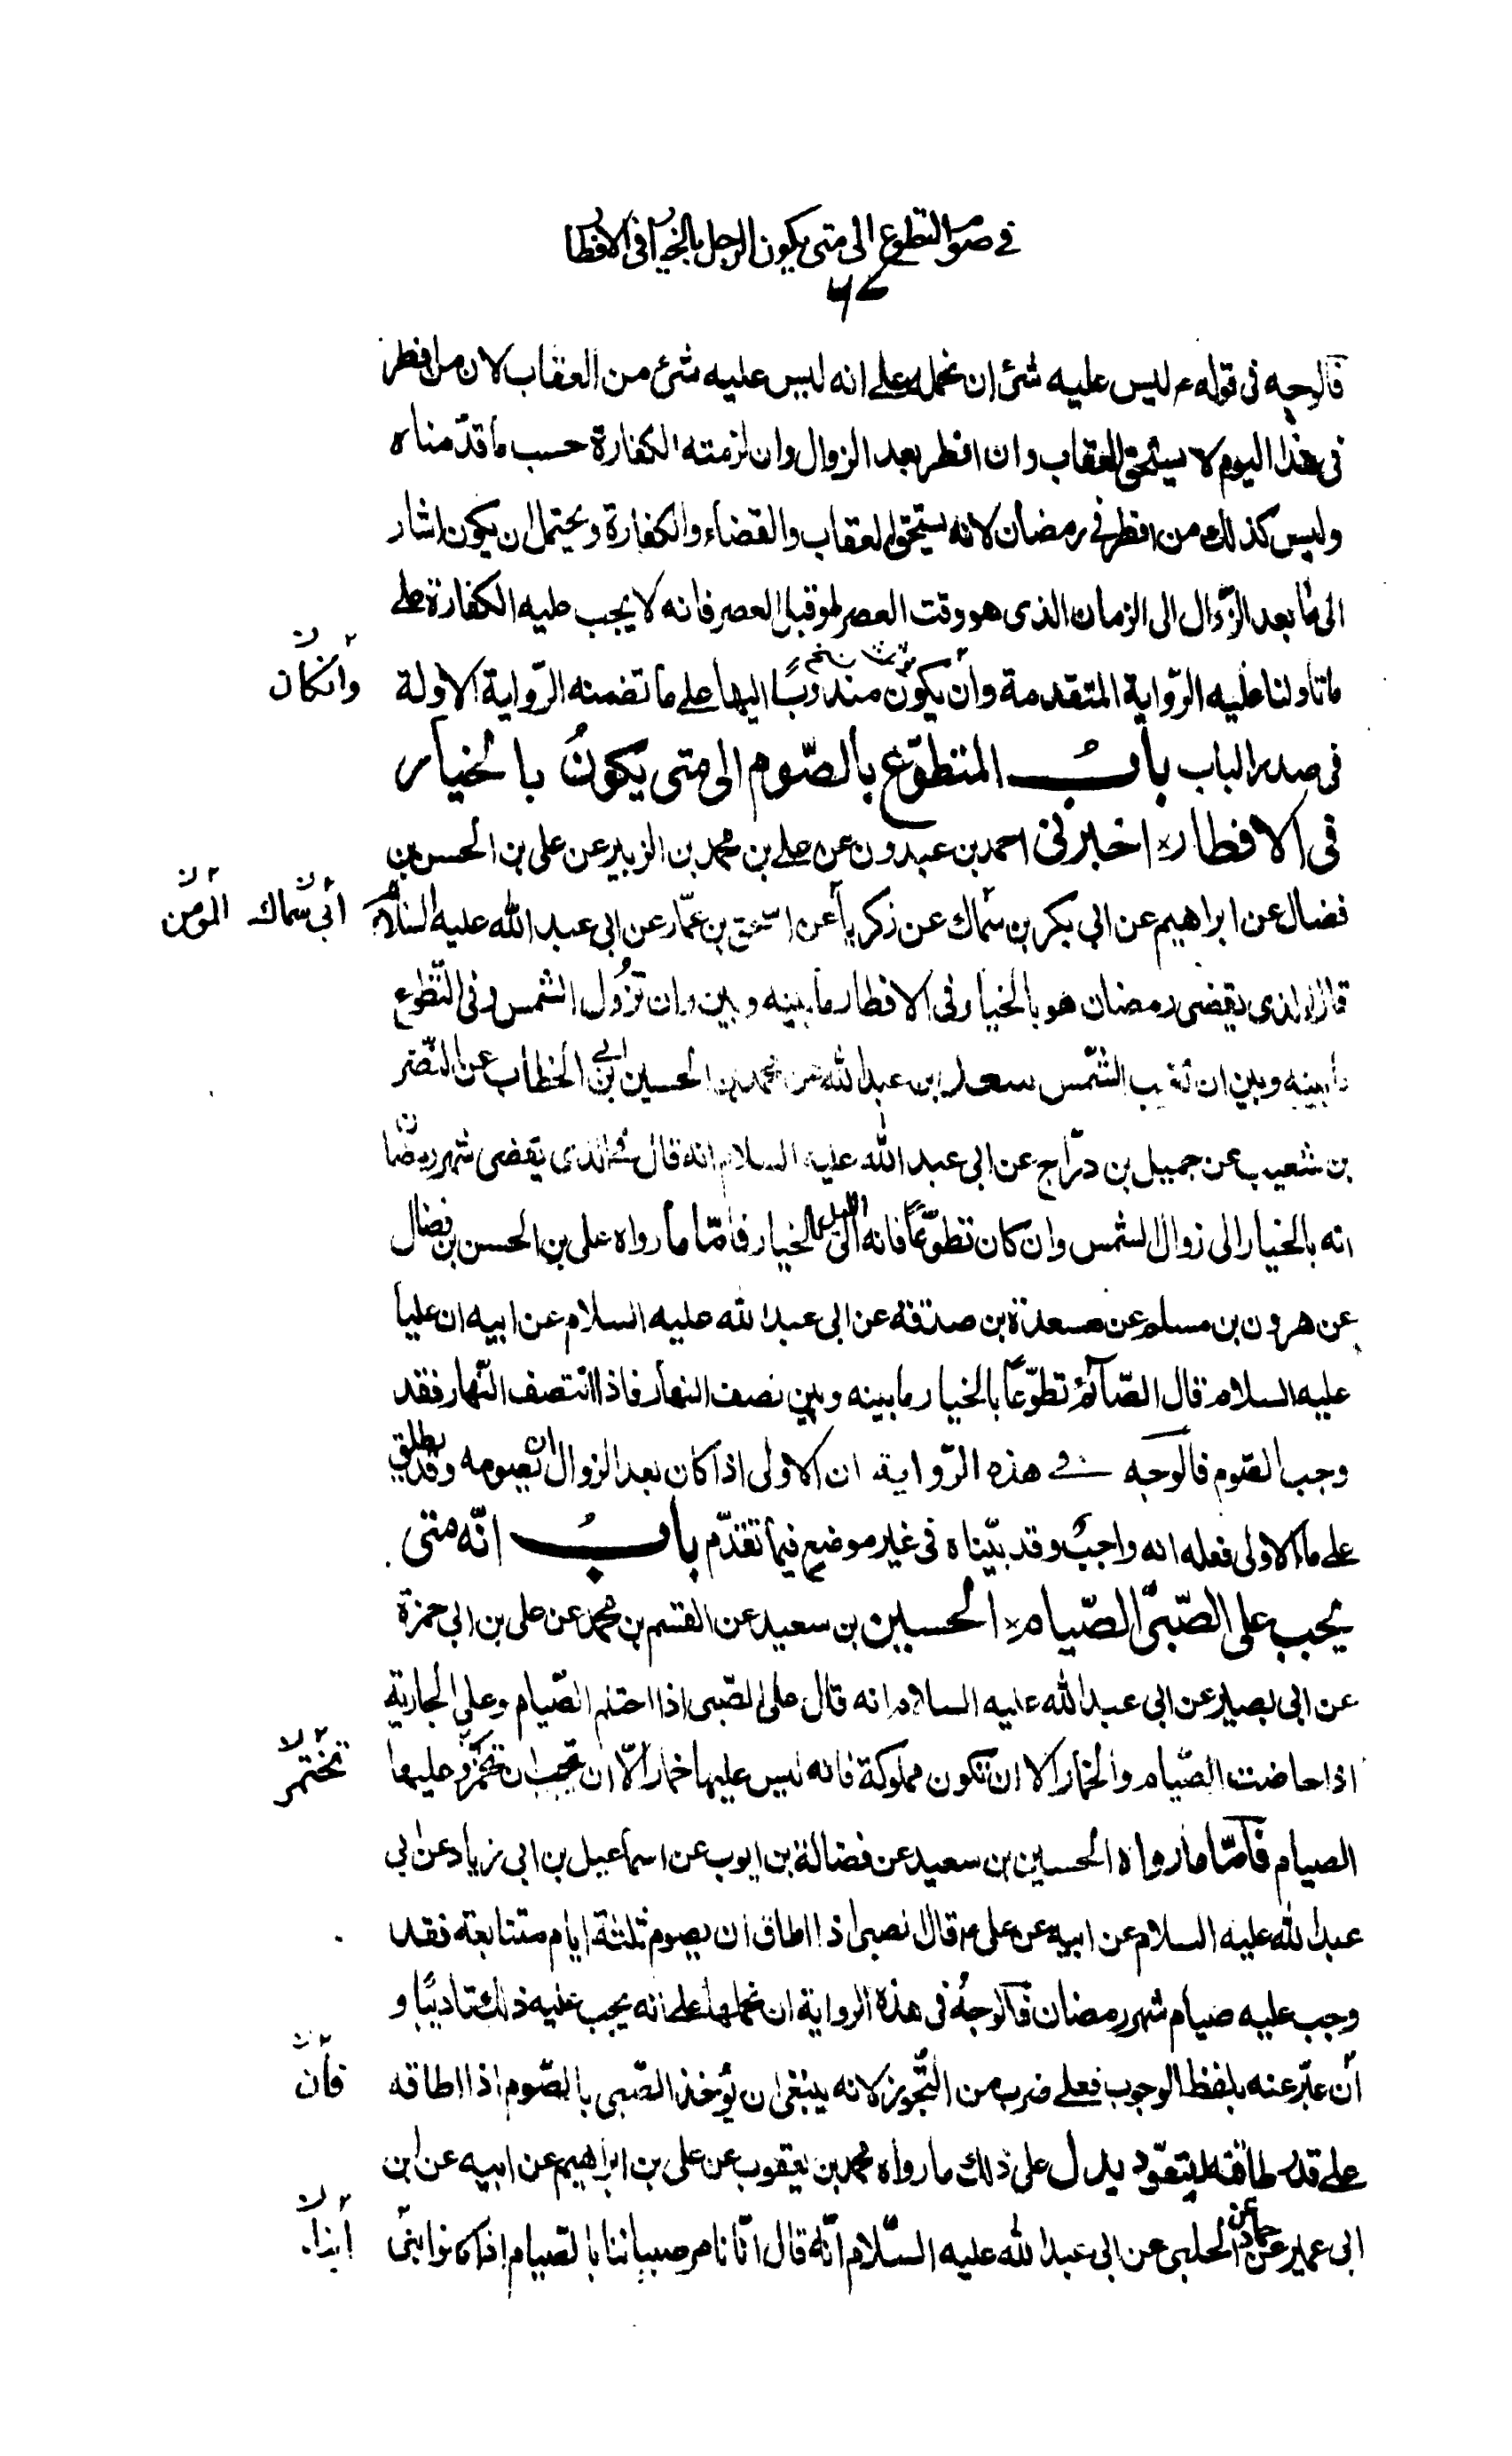 في صوم التطوع الى متى يكون الرجل بالخيار في الافطار
فالوجه فى قوله ع ليس عليه شئ ان نحمله على انه ليس عليه شئ من العقاب لان من افطر
فى هذا اليوم لا يستحق العقاب وان افطر بعد الزوال وان لزمته الكفارة حسب ما قدّمناه
وليس كذلك من افطر في رمضان لانه يستحق العقاب والقضاء والكفارة ويحتمل ان يكون اشار
الى ما بعد الزّوال الى الزمان الذى هو وقت العصر او قبل العصر فانه لا يجب عليه الكفارة على
ما تاولنا عليه الرّواية المتقدمة وأن يكون مندوبًا اليها على ما تضمنه الرّواية الاولة
وانكان
فى صدر الباب بابُ المتطوّع بالصّوم الى متى يكونُ بالخيار
فى الافطار اخبرنى احمد بن عبدون عن على بن محمد بن الزبير عن على بن الحسن بن
فضال عن ابراهيم عن ابي بكر بن سَماك عن زكريا عن اسحق بن عمّار عن ابى عبد الله عليه السّلام
ابي سماك المؤمن
قال الذى يقضى رمضان هو بالخيار فى الافطار ما بينه وبين ان تزُول الشمس وفى التّطوع
ما بينه وبين ان تغيب الشّمس سعد بن عبد الله عن محمد بن الحسين بن ابى الخطاب عن النّضر
بن شعيب عن جميل بن درّاج عن ابى عبد الله عليه السلام انه قال في الذى يقضى شهر رمضان
انه بالخيار الى زوال الشمس وان كان تطوّعًا فانه الى الليل بالخيار فامّا ما رواه على بن الحسن بن فضال
عن هرون بن مسلم عن مسعدة بن صدقة عن ابى عبد الله عليه السلام عن ابيه ان عليا
عليه السلام قال الصّآئم تطوّعًا بالخيار ما بينه وبين نصف النهار فاذا انتصف النّهار فقد
وجب الصّوم فالوجه في هذه الرّواية ان الاولى اذا كان بعد الزوال ان يصومه وقد يطلق
على ما الاولى فعله انه واجبٌ وقد بيّناه فى غير موضع فيما تقدّم بابُ انّه متى
يجب على الصّبىّ الصّيام الحسين بن سعيد عن القسم بن محمد عن على بن ابى حمزة
عن ابى بصير عن ابى عبد الله عليه السلام انه قال على الصّبى اذا احتلم الصّيام وعلى الجارية
اذا حاضت الصّيام والخمار الا ان تكون مملوكة فانه ليس عليها خمار الّا ان تحب ان تختمر وعليها
تختمر
الصيام فاَمّا ما رواه الحسين بن سعيد عن فضالة بن ايوب عن اسماعيل بن ابى زياد عن ابي
عبد الله عليه السلام عن ابيه عن على ع قال الصبى اذا اطاق ان يصوم ثلثة ايام متتابعة فقد
وجب عليه صيام شهر رمضان فالوجهُ فى هذه الرواية ان نحملها على انه يجب عليه ذلك تاديبًا و
أن عبّر عنه بلفظ الوجوب فعلى ضرب من التّجوّز لانه ينبغى ان يُؤخذ الصّبى بالصّوم اذا اطاقه
فان
على قدر طاقته ليتعوّد يدل على ذلك ما رواه محمد بن يعقوب عن على بن ابراهيم عن ابيه عن ابن
ابى عمير عن حماد عن الحلبى عن ابى عبد الله عليه السّلام انّه قال انّا نامر صبياننا بالصّيام اذا كانوا بنى